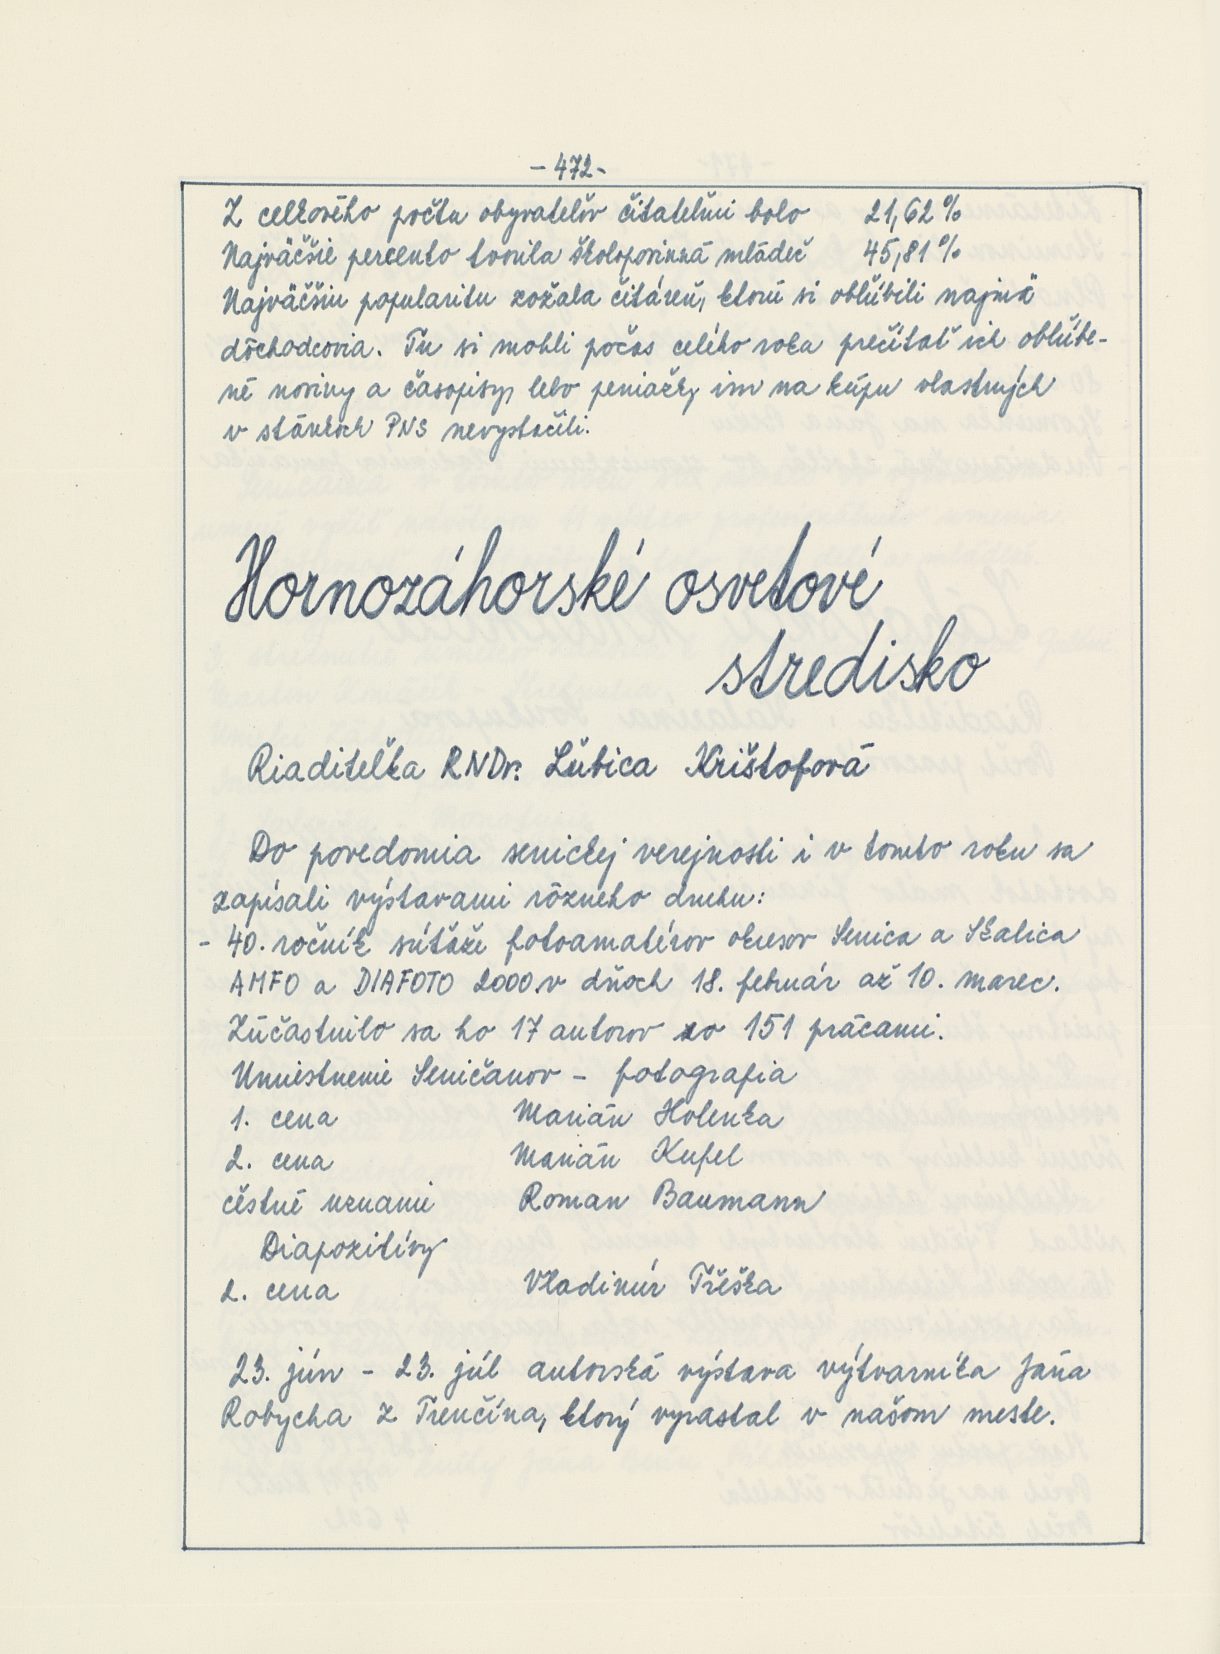 - 472 -
Z celkového počtu obyvateľov čitateľmi bolo 21,62 %
Najväčšie percento tvorila školopovinná mládež 45,81 %
Najväčšiu popularitu zožala čitáreň, ktorú si obľúbili najmä
dôchodcovia. Tu si mohli počas celého roka prečítať ich obľúbe-
né noviny a časopisy, lebo peniažky im na kúpu vlastných
v stánkoch PNS nevystačili.
Hornozáhorské osvetové
stredisko
Riaditeľka RNDr. Ľubica Krištofová
Do povedomia senickej verejnosti i v tomto roku sa
zapísali výstavami rôzneho druhu:
- 40. ročník súťaže fotoamatérov okresov Senica a Skalica
AMFO a DIAFOTO 2000 v dňoch 18. február až 10. marec.
Zúčastnilo sa ho 17 autorov so 151 prácami.
Umiestnenie Seničanov - fotografia
1. cena Marián Holenka
2. cena Marián Kufel
čestné uznanie Roman Baumann
Diapozitívy
2. cena Vladimír Třeška
23. jún - 23. júl autorská výstava výtvarníka Jána
Robycha z Trenčína, ktorý vyrastal v našom meste.